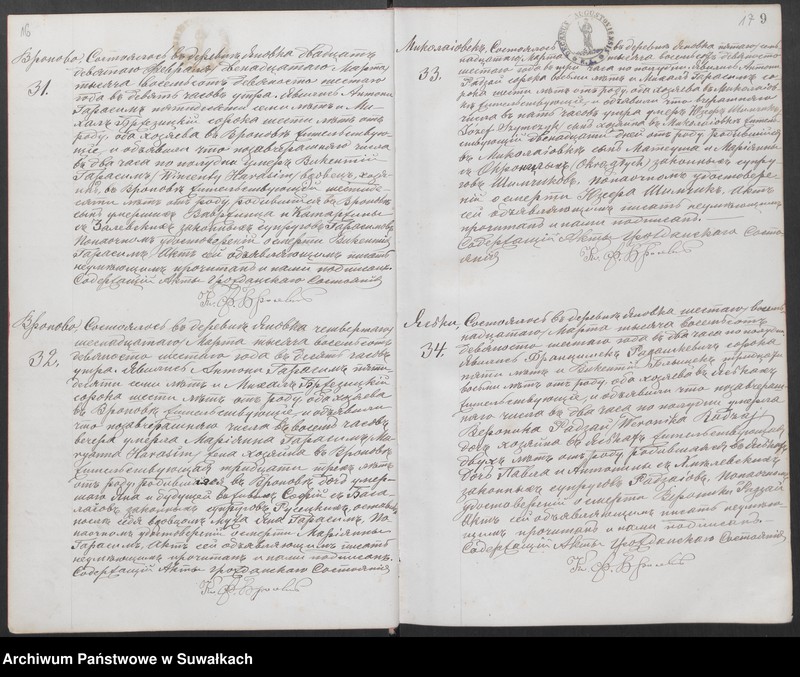 16
Вроново.
31.
Состоялось въ деревнѣ Яновка двадцать
девятаго Февраля, двенадцатаго Марта
тысяча восемьсотъ девяносто шестаго
года въ девять часовъ утра. Явились Антонъ
Гарасимъ пятидесяти семи лѣтъ и Ми-
хаилъ Бржезицкій сорока шести лѣтъ отъ
роду, оба хозяева въ Вроновѣ жительствую-
щіе, и объявили что позавчерашняго числа
въ два часа по полудни умеръ Викентій
Гарасимъ /Wincenty Harasim/ вдовецъ, хозя-
инъ, въ Вроновѣ жительствующій шестиде-
сяти лѣтъ отъ роду, родившійся въ Вроновѣ
сынъ умершихъ Вавржинца и Катаржины
съ Залевскихъ законныхъ супруговъ Гарасимовъ.
По настоящемъ удостовѣреніи о смерти Викентія
Гарасима, Актъ сей объявляющимъ писать
неумѣющимъ прочитанъ и нами подписанъ.
Содержащій Акты Гражданскаго Состоянія
Вроново.
32.
Состоялось въ деревнѣ Яновка четвертаго
шеснадцатаго Марта тысяча восемьсотъ
девяносто шестаго года въ десять часовъ
утра. Явились Антонъ Гарасимъ пяти-
десяти семи лѣтъ и Михаилъ Бржезицкій
сорока шести лѣтъ отъ роду, оба хозяева
въ Вроновѣ жительствующіе, и объявили
что позавчерашняго числа въ восемь часовъ
вечера умерла Маріянна Гарасимъ /Ma-
ryanna Harasim/ жена хозяина въ Вроновѣ
жительствующая тридцати трехъ лѣтъ
отъ роду, родившаяся въ Вроновѣ дочь умер-
шаго Яна и будущей въ живыхъ Софіи съ
законныхъ супруговъ оставивъ
послѣ себя вдовцомъ мужа Яна Гарасимъ. По
настоящемъ удостовѣреніи о смерти Маріянны
Гарасимъ, Актъ сей объявляющимъ писать
неумѣющимъ прочитанъ и нами подписанъ.
Содержащій Акты Гражданскаго Состоянія
17 9
Николаіовекъ.
33.
Состоялось въ деревнѣ Яновка пятаго, сем-
надцатаго Марта тысяча восемьсотъ девяносто
шестаго года въ три часа по полудни. Явились Антонъ
Рѣдзай сорока восьми лѣтъ и Михаилъ Гарасимъ со-
рока шести лѣтъ отъ роду, оба хозяева въ Николаіов-
кѣ жительствующіе, и объявили что вчерашняго
числа въ пять часовъ утра умеръ Юзефъ Шимчикъ
/Józef Szymczyk/ сынъ хозяина въ Николаіовкѣ житель-
ствующій двенадцати дней отъ роду, родившійся
въ Николаіовкѣ сынъ Матеуша и Маріянны
съ Окронглыхъ /Okrągłych/ законныхъ супру-
говъ Шимчиковъ. По настоящемъ удостовѣре-
ніи о смерти Юзефа Шимчикъ, Актъ
сей объявляющимъ писать неумѣющимъ
прочитанъ и нами подписанъ.
Содержащій Акты Гражданскаго Состо-
янія
Ясѣки.
34.
Состоялось въ деревнѣ Яновка шестаго, восем-
надцатаго Марта тысяча восемьсотъ
девяносто шестаго года въ два часа по полудни.
Явились Францишекъ сорока
пяти лѣтъ и Викентій тридцати
восьми лѣтъ отъ роду, оба хозяева въ Ясѣкахъ
жительствующіе, и объявили что позавчераш-
няго числа въ два часа по полудни умерла
Вероника Рѣдзай /Weronika Rydzaj/
дочь хозяина въ Ясѣкахъ жительствующая
двухъ лѣтъ отъ роду, родившаяся въ Ясѣкахъ
дочь Павла и Антонины съ
законныхъ супруговъ Рѣдзаіовъ. По настоящемъ
удостовѣреніи о смерти Вероники Рѣдзай
Актъ сей объявляющимъ писать неумѣю-
щимъ прочитанъ и нами подписанъ.
Содержащій Акты Гражданскаго Состоянія
Archiwum Państwowe w Suwałkach